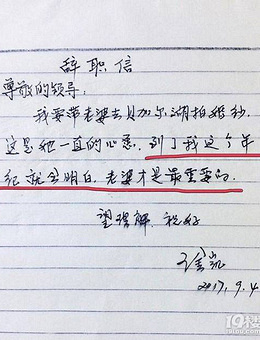 辞职信
尊敬的领导:
我要带老婆去贝加尔湖拍婚纱.
这是她一直的心愿. 到了我这个年
纪就会明白, 老婆才是最重要的.
望理解. 祝好
徐凯
2017.9.4
19楼